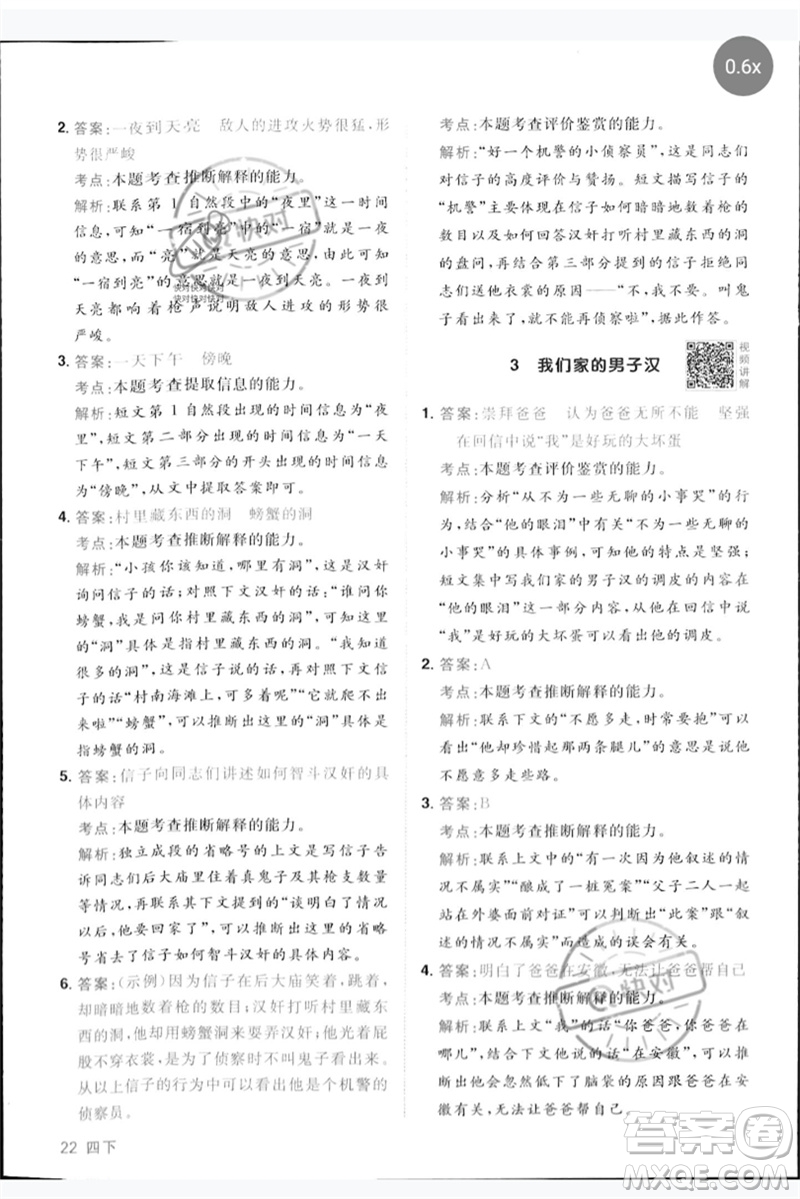 0.6x
2. 答案:一夜到天亮　敌人的进攻火势很猛,形
势很严峻
考点:本题考查推断解释的能力。
解析:联系第 1 自然段中的“夜里”这一时间
信息,可知“一宿到亮”中的“一宿”就是一夜
的意思,而“亮”就是天亮的意思,由此可知
“一宿到亮”的意思就是一夜到天亮。一夜到
天亮都响着枪声说明敌人进攻的形势很
严峻。
3. 答案:一天下午　傍晚
考点:本题考查提取信息的能力。
解析:短文第 1 自然段出现的时间信息为“夜
里”,短文第二部分出现的时间信息为“一天
下午”,短文第三部分的开头出现的时间信息
为“傍晚”,从文中提取答案即可。
4. 答案:村里藏东西的洞　螃蟹的洞
考点:本题考查推断解释的能力。
解析:“小孩你该知道,哪里有洞”,这是汉奸
询问信子的话;对照下文汉奸的话“我是问你
螃蟹吗?我是问你村里藏东西的洞”,可以推
断出这里的“洞”具体是指村里藏东西的洞。
“我知道很多的洞”,这是信子说的话,再对照下文信
子的话“村南海滩上,可多哩”“它就爬不出
来啦”“螃蟹”,可以推断出这里的“洞”具体是
指螃蟹的洞。
5. 答案:信子向同志们讲述如何智斗汉奸的具
体内容
考点:本题考查推断解释的能力。
解析:独立成段的省略号的上文是写信子告
诉同志们大庙里的真鬼子及其枪支数量的
具体情况,再联系其下文提到的“谈完了,信
子说,他要回家了”,可以推断出这里的省略
号省去了信子如何智斗汉奸的具体内容。
6. 答案:(示例)因为信子在后大庙笑着,跳着,
却暗暗地数着枪的数目;汉奸打听村里藏东
西的洞,他却用螃蟹洞来耍弄汉奸;他光着屁
股不穿衣裳,是为了侦察时不叫鬼子看出来。
从以上信子的行为中可以看出他是个机警的
侦察员。
考点:本题考查评价鉴赏的能力。
解析:“好一个机警的小侦察员”,是同志们
对信子的高度评价与赞扬。短文描写信子的
“机警”主要体现在信子如何暗暗地数着枪的
数目以及如何回答汉奸打听村里藏东西的洞
的盘问,再结合第三部分提到的信子拒绝同
志们送他衣裳的原因——“不,我不要。叫鬼
子看出来就不能再侦察啦”,据此作答。
3　我们家的男子汉
视频讲解
1. 答案:崇拜爸爸　认为爸爸无所不能　坚强
在回信中说“我”是好玩的大坏蛋
考点:本题考查评价鉴赏的能力。
解析:分析“从不为一些无聊的小事哭”的行
为,结合“他的眼泪”中有关“不为一些无聊的
小事哭”的具体事例,可知他的特点是坚强;
短文集中写我们家的男子汉的调皮的内容在
“他的眼泪”这一部分内容中,他在回信中说
“我”是好玩的大坏蛋,体现了他的调皮。
2. 答案:A
考点:本题考查推断解释的能力。
解析:联系下文的“不愿多走,时常要抱”,可以
看出“他却珍惜起那两条腿儿”的意思是说他
不愿意多走些路。
3. 答案:B
考点:本题考查推断解释的能力。
解析:联系上文中的“有一次因为他叙述的情
况不真实”“酿成了一桩冤案”“父子二人一起
站在外婆面前对证”,可以判断出“此案”与“叙
述的情况不真实”而造成的误会有关。
4. 答案:明白了爸爸在安徽,无法让爸爸帮自己
考点:本题考查推断解释的能力。
解析:联系上文“我”的话“你爸爸,你爸爸在
哪儿”,结合下文提到的“爸爸在安徽”,可以推
断出他忽然低下了脑袋的原因跟爸爸远在
安徽有关,无法让爸爸帮助自己。
22 四下
快对
快对快对快对
快对快对快对
快对
答案圈
MXQE.COM